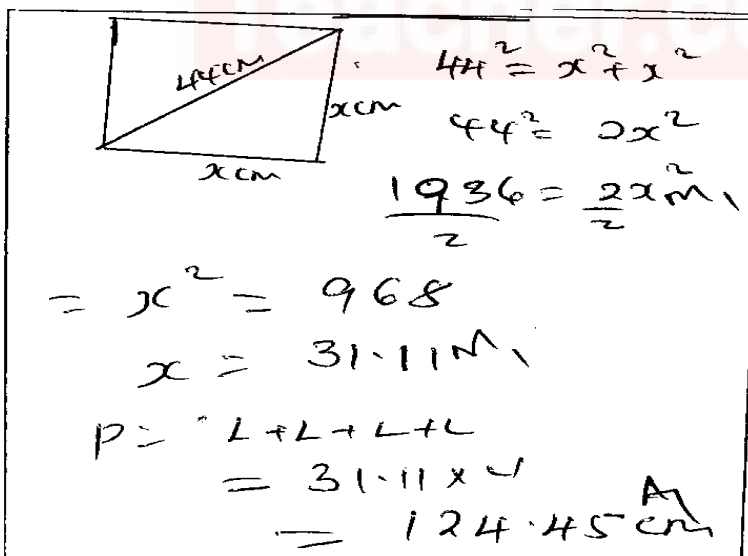 Teacher.co
44cm
xcm
xcm
44² = x² + x²
44² = 2x²
1936/2 = 2x²/2 M1
= x² = 968
x = 31.11 M1
P = L + L + L + L
= 31.11 x 4
= 124.45 cm A1